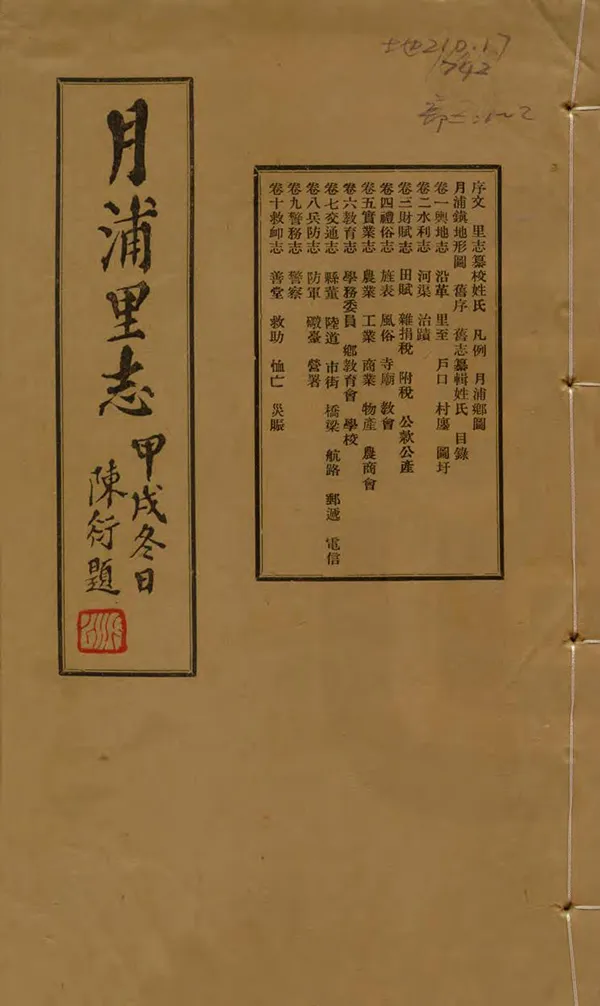 地210.17
/742
月浦里志
甲戌冬日
陳衍題
序文 里志纂校姓氏 凡例 月浦鄉圖
月浦鎮地形圖 舊序 舊志纂輯姓氏 目錄
卷一輿地志 沿革 里至 戶口 村廛 圖圩
卷二水利志 河渠 治蹟
卷三財賦志 田賦 雜捐稅 附稅 公款公產
卷四禮俗志 旌表 風俗 寺廟 教會
卷五實業志 農業 工業 商業 物產 農商會
卷六教育志 學務委員 鄉教育會 學校
卷七交通志 縣董 陸道 市街 橋梁 航路 郵遞 電信
卷八兵防志 防軍 礮臺 營署
卷九警務志 警察
卷十救卹志 善堂 救助 恤亡 災賑